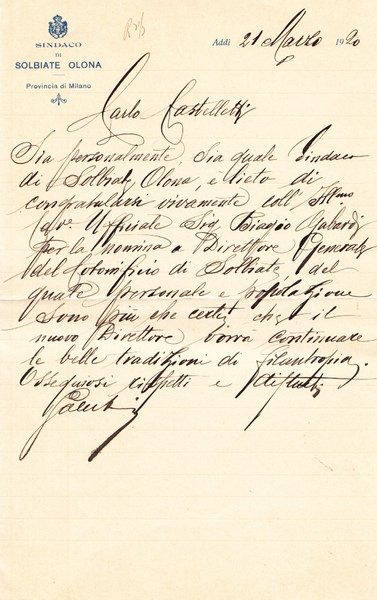 SINDACO
DI
SOLBIATE OLONA
Provincia di Milano
Addì 21 Marzo 1920
Carlo Castelletti
Sia personalmente, sia quale Sindaco
di Solbiate Olona, è lieto di
congratularsi vivamente coll'Ill.mo
Uffiziale Sig. Biagio
per la nomina a Direttore Generale
del Cotonificio di Solbiate, del
quale personale e popolazione
sono più che certi, che il
nuovo Direttore vorrà continuare
le belle tradizioni di filantropia.
Ossequiosi rispetti e distinti
Saluti